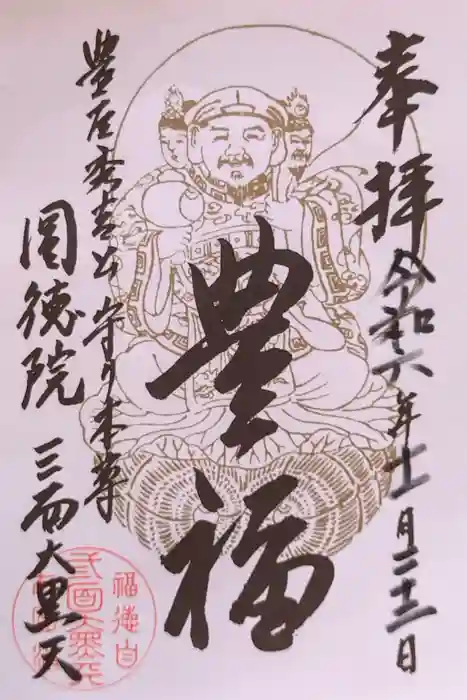 奉拝
令和六年十一月二十日
豊福
豊臣秀吉公 守り本尊
圓徳院 三面大黒天
福徳自
三面大黒天